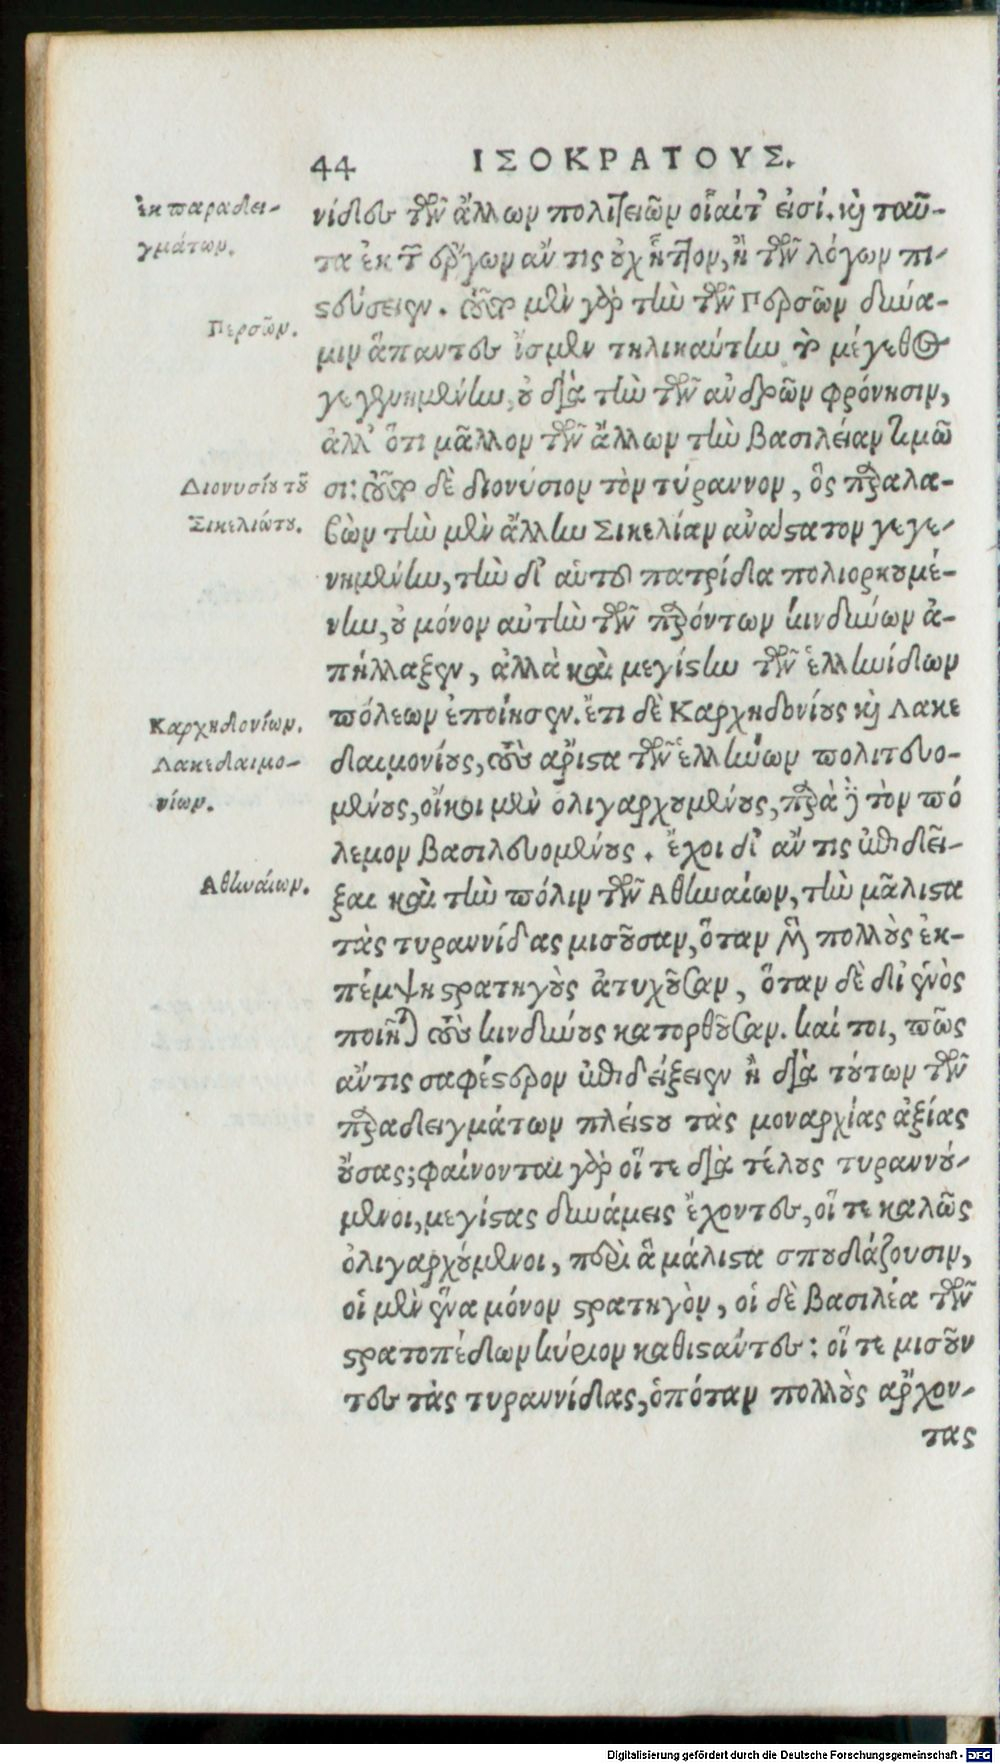 44 ΙΣΟΚΡΑΤΟΥΣ.
ἐκ παραδει-
γμάτων.
νίδες τῶν ἄλλων πολιτειῶν οἷαί τ' εἰσί. καὶ ταῦ-
τα ἐκ τῶν ἔργων ἄν τις οὐχ ἧττον, ἢ τῶν λόγων πι-
στεύσειεν. τούς μὲν γὰρ τὴν τῶν Περσῶν δύνα-
Περσῶν.
μιν ἅπαντες ἴσμεν τηλικαύτην τὸ μέγεθος
γεγενημένην, οὐ διὰ τὴν τῶν ἀνδρῶν φρόνησιν,
ἀλλ' ὅτι μᾶλλον τῶν ἄλλων τὴν βασιλείαν τιμῶ
Διονυσίου τοῦ
Σικελιώτου.
σι: δὲ διονύσιον τὸν τύραννον, ὃς παραλα-
βὼν τὴν μὲν ἄλλην Σικελίαν ἀνάστατον γεγε-
νημένην, τὴν δ' αὑτοῦ πατρίδα πολιορκουμέ-
νην, οὐ μόνον αὐτὴν τῶν παρόντων κινδύνων ἀ-
πήλλαξεν, ἀλλὰ καὶ μεγίστην τῶν ἑλληνίδων
πόλεων ἐποίησεν. ἔτι δὲ Καρχηδονίους καὶ Λακε
Καρχηδονίων.
Λακεδαιμο-
νίων.
δαιμονίους, τοὺς ἄριστα τῶν ἑλλήνων πολιτευο-
μένους, οἴκοι μὲν ὀλιγαρχουμένους, παρὰ δὲ τὸν πό
λεμον βασιλευομένους. ἔχοι δ' ἄν τις ἐπιδεῖ-
Ἀθηναίων.
ξαι καὶ τὴν πόλιν τῶν Ἀθηναίων, τὴν μάλιστα
τὰς τυραννίδας μισοῦσαν, ὅταν μὲν πολλοὺς ἐκ-
πέμψῃ στρατηγοὺς ἀτυχοῦσαν, ὅταν δὲ δι' ἑνὸς
ποιῆται τοὺς κινδύνους κατορθοῦσαν. καί τοι, πῶς
ἄν τις σαφέστερον ἐπιδείξειεν ἢ διὰ τούτων τῶν
παραδειγμάτων πλείστου τὰς μοναρχίας ἀξίας
οὔσας; φαίνονται γὰρ οἵ τε διὰ τέλους τυραννού-
μενοι, μεγίστας δυνάμεις ἔχοντες, οἵ τε καλῶς
ὀλιγαρχούμενοι, περὶ ἃ μάλιστα σπουδάζουσιν,
οἱ μὲν ἕνα μόνον στρατηγὸν, οἱ δὲ βασιλέα τῶν
στρατοπέδων κύριον καθιστάντες: οἵ τε μισοῦν
τες τὰς τυραννίδας, ὁπόταν πολλοὺς ἄρχον-
τας
Digitalisierung gefördert durch die Deutsche Forschungsgemeinschaft - DFG